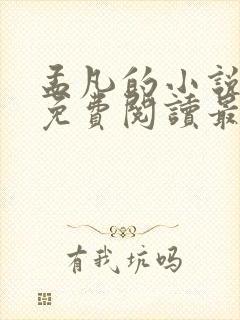 孟凡的小說
免費閱讀最
有我坑吗